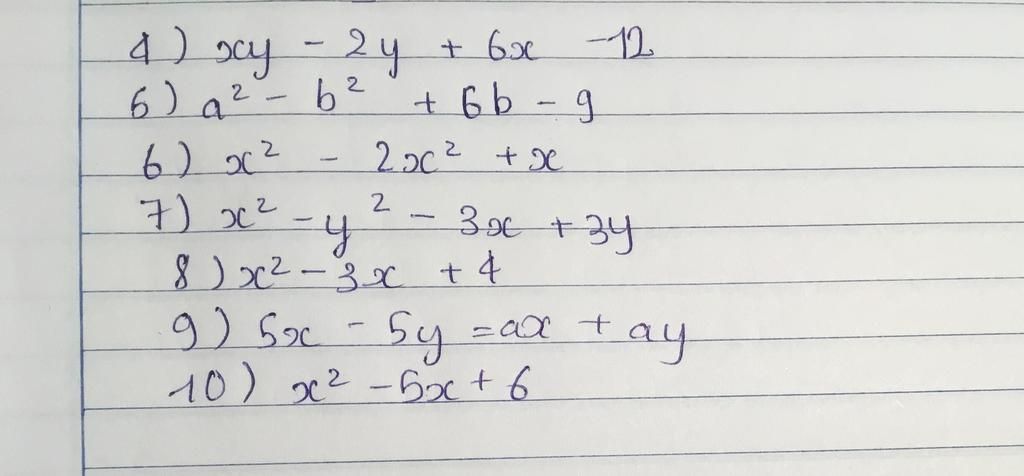 4) xy - 2y + 6x -12
5) a² - b² + 6b - 9
6) x² - 2x² + x
7) x² - y² - 3x + 3y
8) x² - 3x + 4
9) 5x - 5y = ax + ay
10) x² - 5x + 6